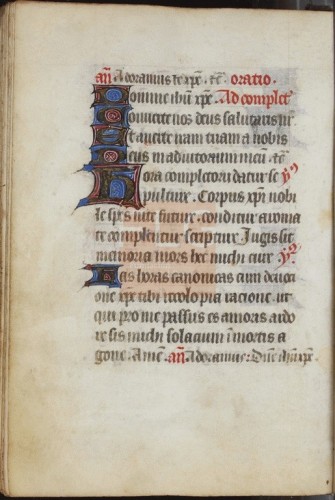 an̄ Adoramus te xp̄e. tē oratio.
Domine ihū xp̄e. Ad complet̄
Conuerte nos deus salutaris nr̄
Et auerte iram tuam a nobis
Deus in adiutorium meū. tē
Hora completorii datur se
pulture. Corpus xp̄i nobi
le spes uite future. conditur aromā
te complentur scripture. Jugis sit
memoria mors hec michi cure
Has horas canonicas cum deuoti
one xp̄e tibi recolo pia racione. ut
qui pro me passus es amoris ardo
re sis michi solacium ī mortis a
gone. Amē. an̄ Adoramus. Dn̄e ihū xp̄e